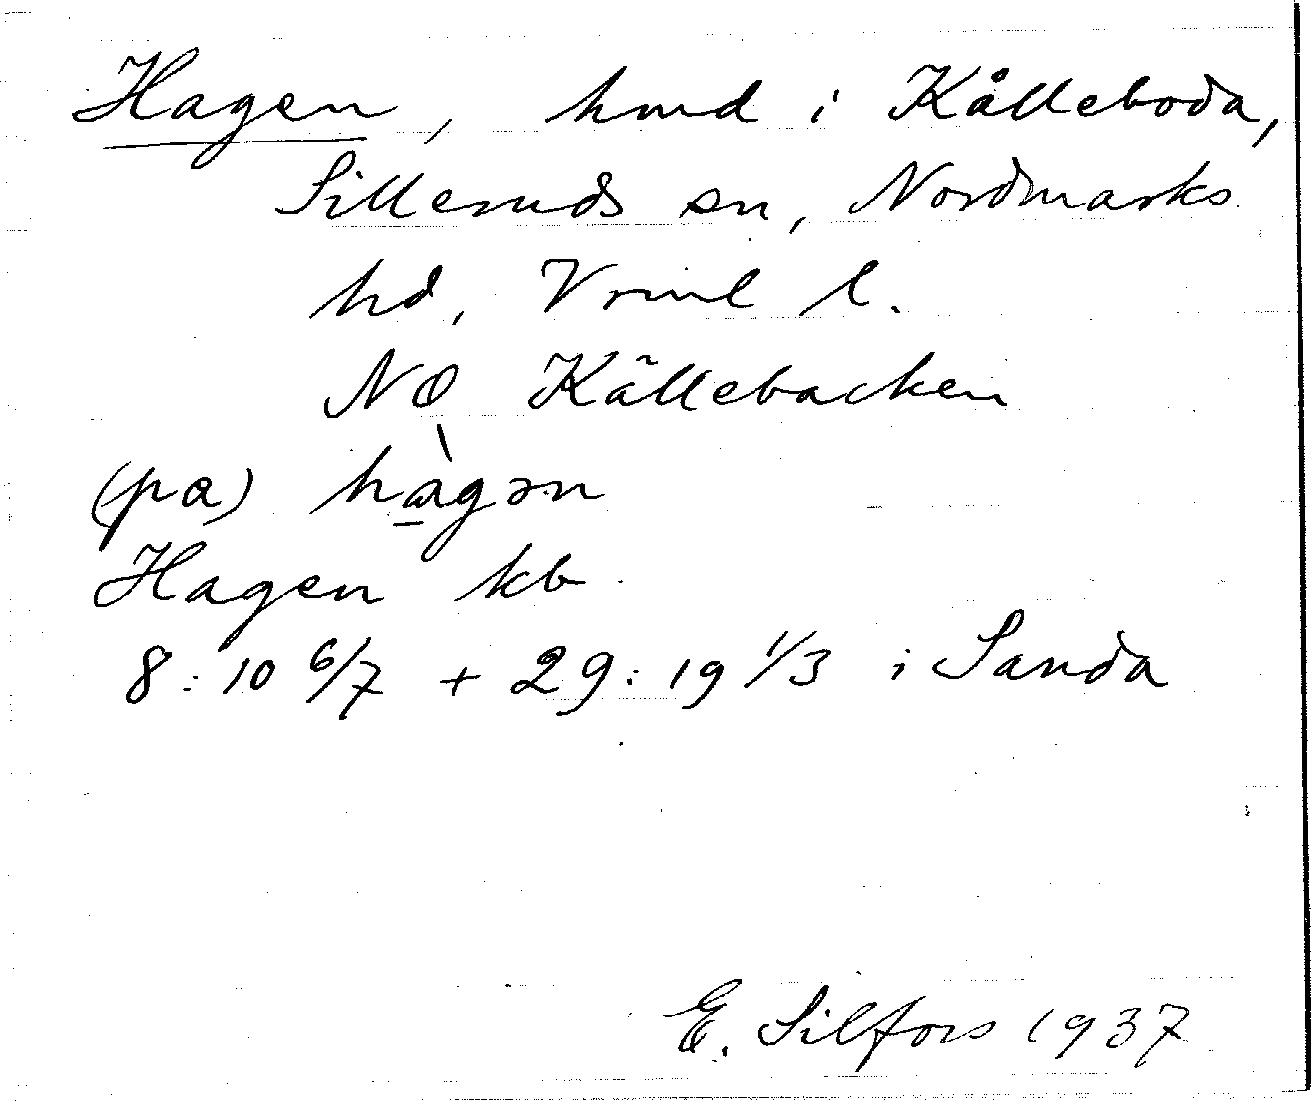 Hagen, hmd i Kålleboda,
Silleruds sn, Nordmarks
hd, Vrml l.
NO Källebacken
(pa) hàgən
Hagen kb
8:10 6/7 + 29:19 1/3 i Sanda
E. Silfors 1937